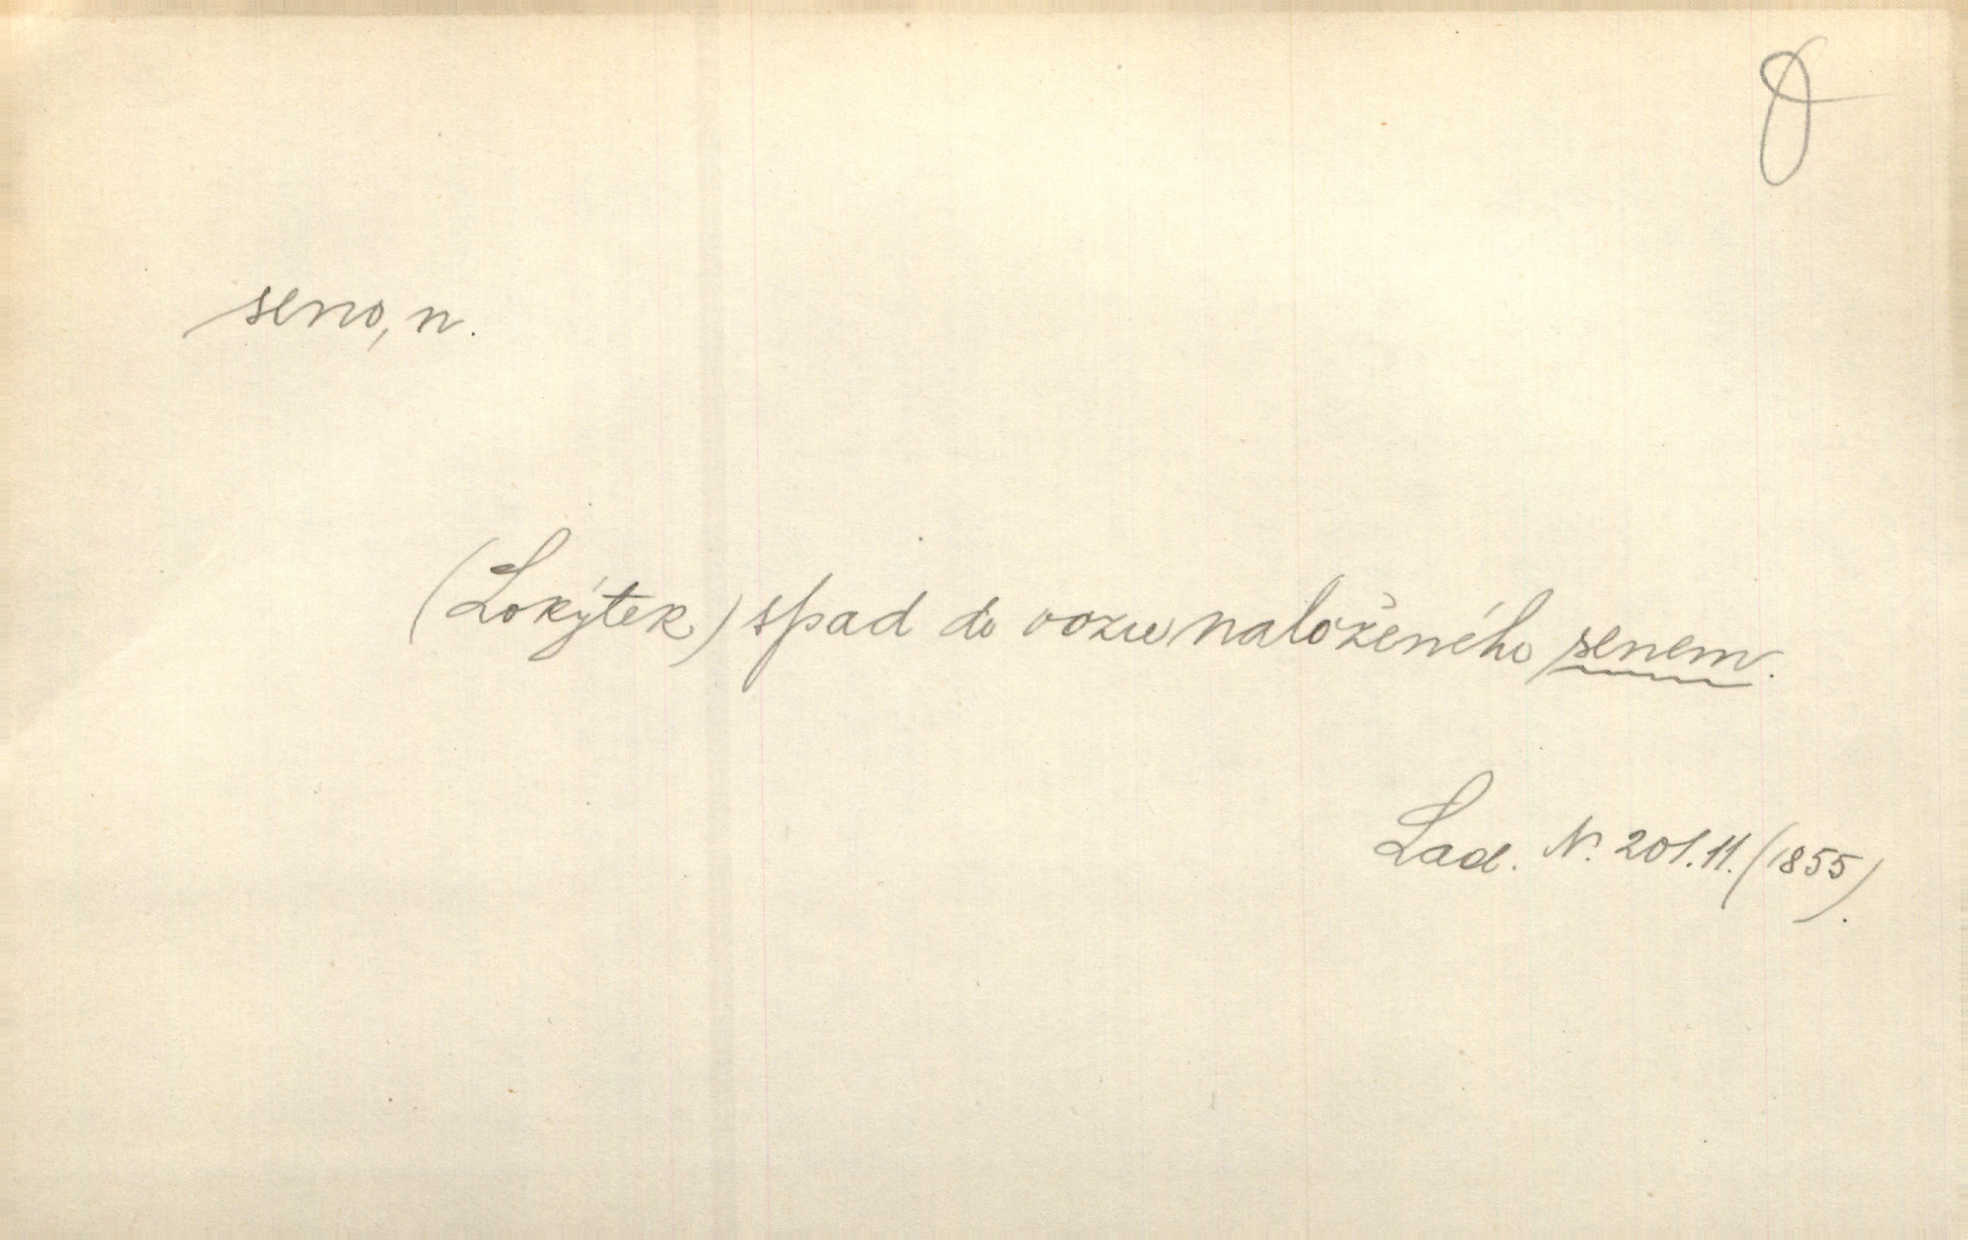 seno, n.
(Lokýtek) spad do vozu naloženého senem.
Lad. N. 201.11. (1855).